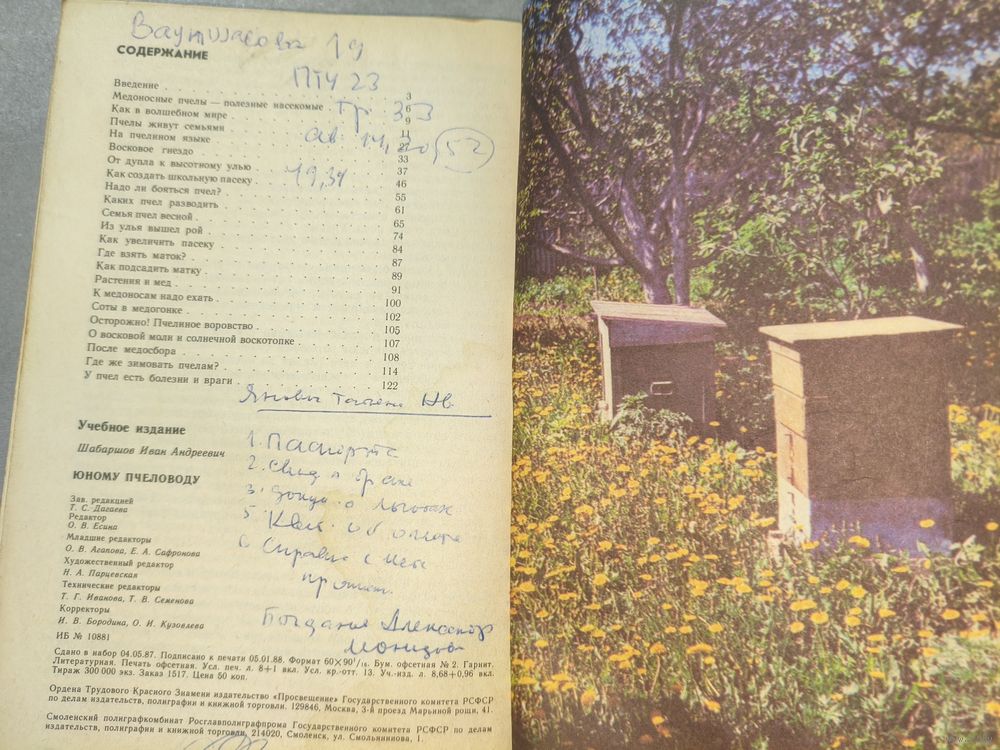 Ваупшасова 19
СОДЕРЖАНИЕ
ПТУ 23
Введение 3
Медоносные пчелы — полезные насекомые 6
Как в волшебном мире 9
гр. 33
Пчелы живут семьями 11
На пчелином языке 27
ав. 14, 20, 52
Восковое гнездо 33
От дупла к высотному улью 37
Как создать школьную пасеку 46
19,34
Надо ли бояться пчел? 55
Каких пчел разводить 61
Семья пчел весной 65
Из улья вышел рой 74
Как увеличить пасеку 84
Где взять маток? 87
Как подсадить матку 89
Растения и мед 91
К медоносам надо ехать 100
Соты в медогонке 102
Осторожно! Пчелиное воровство 105
О восковой моли и солнечной воскотопке 107
После медосбора 108
Где же зимовать пчелам? 114
У пчел есть болезни и враги 122
Учебное издание
Шабаршов Иван Андреевич
ЮНОМУ ПЧЕЛОВОДУ
Зав. редакцией
Т. С. Дагаева
Редактор
О. В. Есина
Младшие редакторы
О. В. Агапова, Е. А. Сафронова
Художественный редактор
Н. А. Парцевская
Технические редакторы
Т. Г. Иванова, Т. В. Семенова
Корректоры
И. В. Бородина, О. И. Кузовлева
ИБ № 10881
1. Паспорта
2. Свид о браке
3. о льготах
5. Квит. об оплате
6 Справка с места
Александр
Сдано в набор 04.05.87. Подписано к печати 05.01.88. Формат 60×90¹/₁₆. Бум. офсетная № 2. Гарнит.
Литературная. Печать офсетная. Усл. печ. л. 8+1 вкл. Усл. кр.-отт. 13. Уч.-изд. л. 8,68+0,96 вкл.
Тираж 300 000 экз. Заказ 1517. Цена 50 коп.
Ордена Трудового Красного Знамени издательство «Просвещение» Государственного комитета РСФСР
по делам издательств, полиграфии и книжной торговли. 129846, Москва, 3-й проезд Марьиной рощи, 41.
Смоленский полиграфкомбинат Росглавполиграфпрома Государственного комитета РСФСР по делам
издательств, полиграфии и книжной торговли, 214020, Смоленск, ул. Смольянинова, 1.